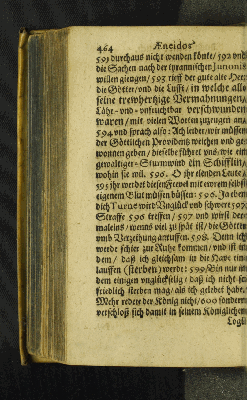 464 Æneidos
591 durchaus nicht wenden könte/ 592 und
die Sachen nach der tyrannischen Junonis
willen giengen/ 593 rieff der gute alte Herr
die Götter/ und die Lufft/ in welche alle
seine treuhertzige Vermahnungen/
Lähr- und unfruchtbar verschwunden
waren/ mit vielen Worten zuzeugen an/
594 und sprach also: Ach leider/ wir müssen
der Göttlichen Providentz weichen und ge-
wonnen geben/ dieselbe führet uns/ wie ein
gewaltiger Sturmwind ein Schifflin/
wohin sie wil. 595. O ihr elenden Leute/
595 ihr werdet diesen Frevel mit ewrem selbst
eigenem Blut müssen büssen: 596. Ja eben
dich Turne wird Unglück und schwere 596
Straffe 596 treffen/ 597 und wirst der-
maleins/ wenns viel zu spät ist/ die Götter
umb Verzeihung anruffen. 598. Denn ich
werde schier zur Ruhe kommen/ und ist in
dem/ daß ich gleichsam in die Have ein-
lauffen (sterben) werde: 599 Bin nur in
dem einigen unglückselig/ daß ich nicht so
friedlich sterben mag/ als ich gelebet habe.
Mehr redete der König nicht/ 600 sondern
verschloß sich damit in seinem Königlichen